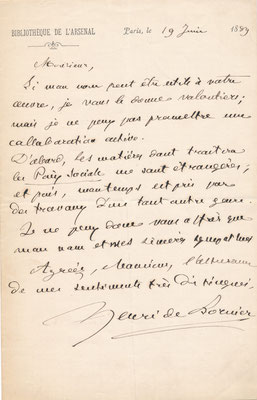 BIBLIOTHÈQUE DE L'ARSENAL
Paris, le 19 Juin 1889
Monsieur,
Si mon nom peut être utile à votre
œuvre, je vous le donne volontiers;
mais je ne puis promettre une
collaboration active.
D'abord, les matières dont traitera
la Paix sociale me sont étrangères;
et puis, mon temps est pris par
des travaux d'un tout autre genre.
Je ne puis donc vous offrir que
mon nom et mes sincères sympathies
Agréez, Monsieur, l'assurance
de mes sentiments très distingués.
Henri de Bornier